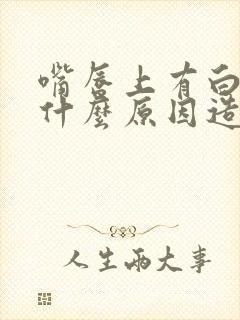 嘴唇上有白
什麼原因造
人生兩大事